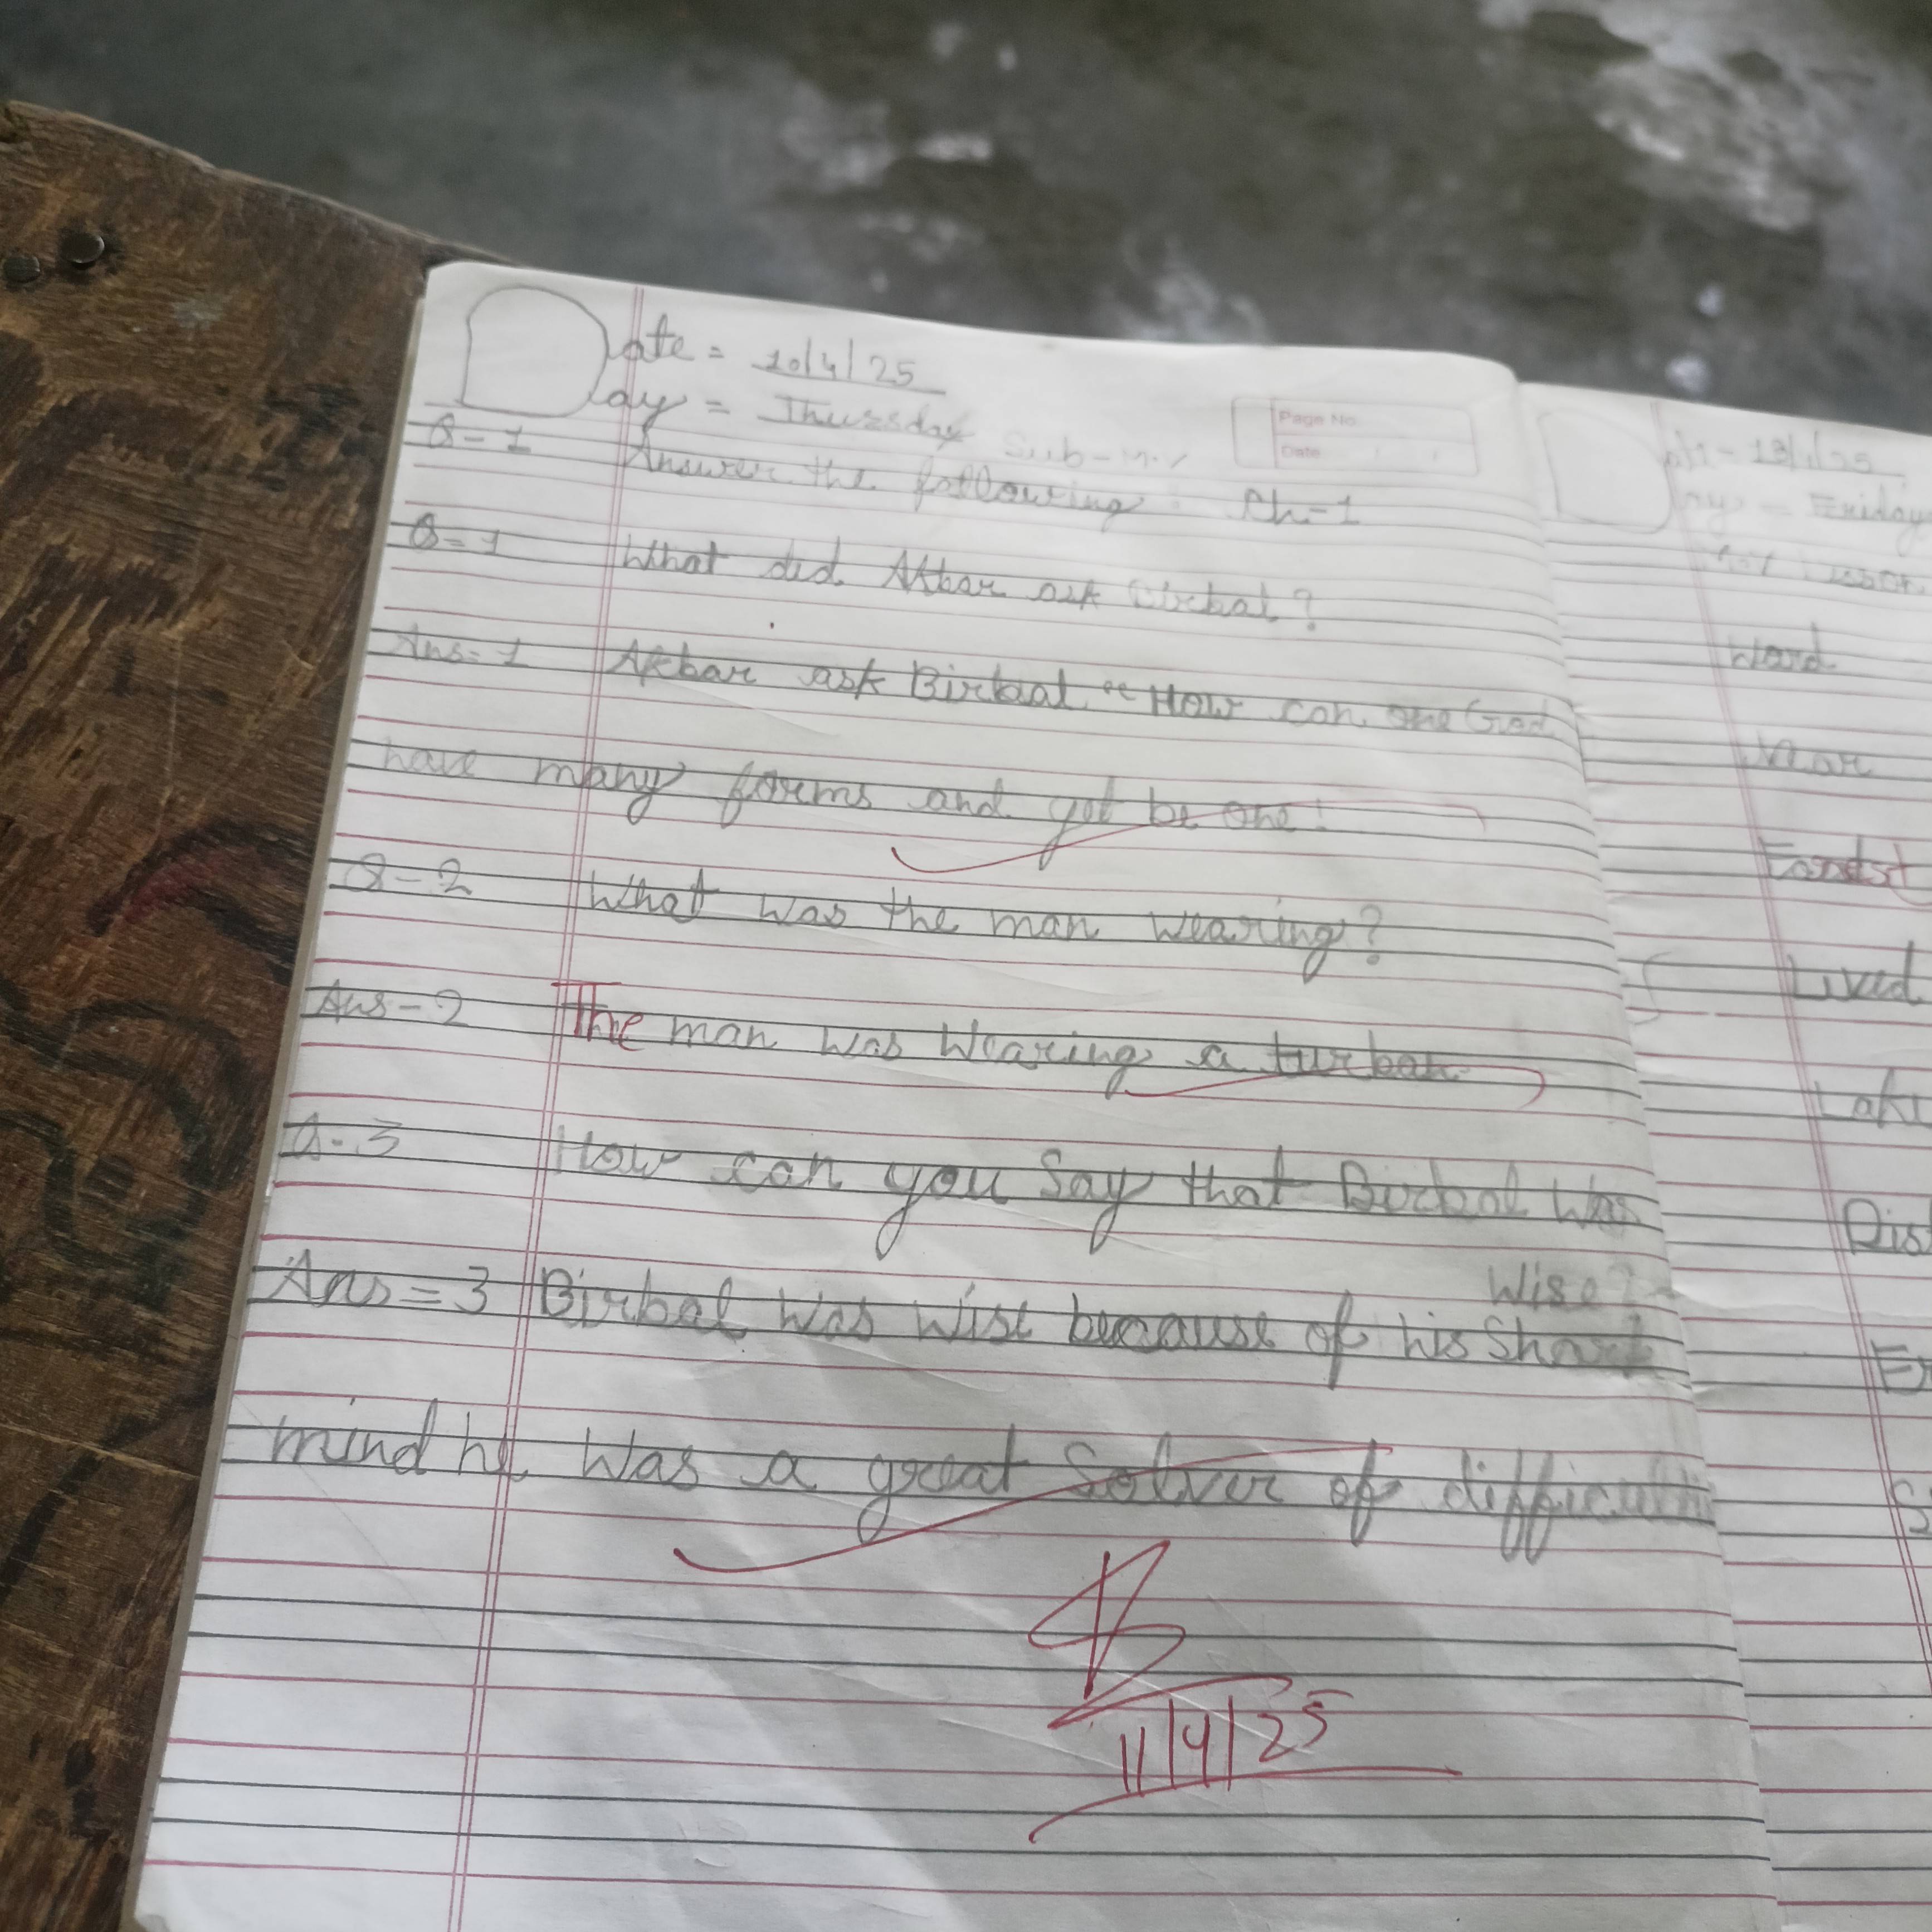 Date = 10/4/25
Day = Thursday
Sub-
Page No.
Date
Q-1 Answer the following: Ch-1
Q=1 What did Akbar ask Birbal?
Ans=1 Akbar ask Birbal "How can one God
have many forms and yet be one.
Q-2 What was the man wearing?
Ans-2 The man was Wearing a turban
Q-3 How can you Say that Birbal Was
Wise?
Ans=3 Birbal Was Wise because of his Sharp
mind he Was a great Solver of
11/4/25
Friday
Word
Near
Lived